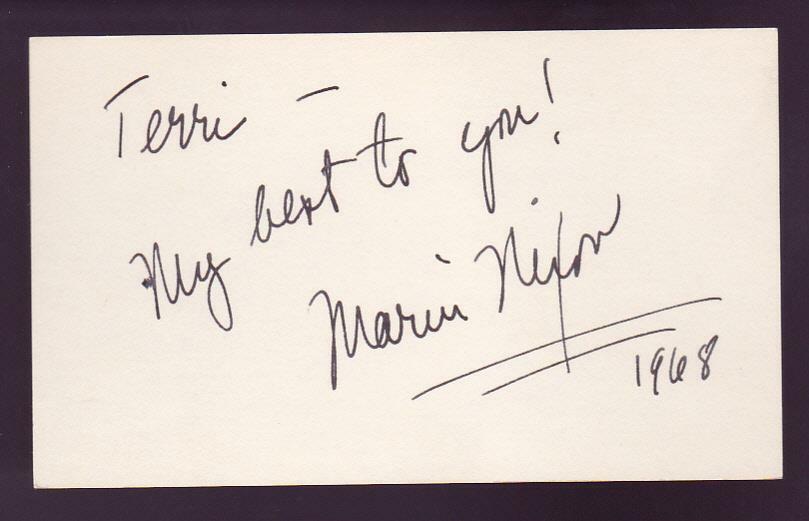 Terri –
My best to you!
Marni Nixon
1968